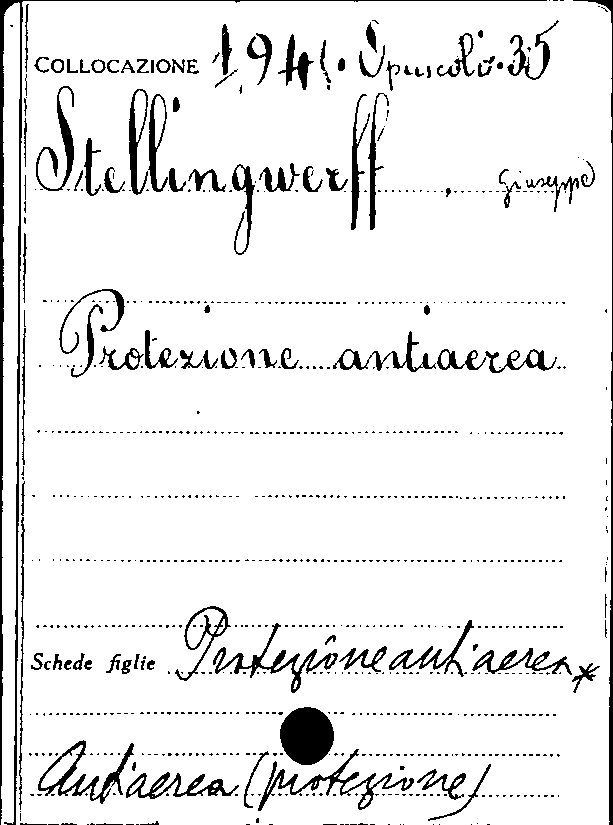 COLLOCAZIONE 1941. Opuscoli. 35
Stellingwerff, Giuseppe
Protezione antiaerea
Schede figlie Protezione antiaerea*
Antiaerea (protezione)